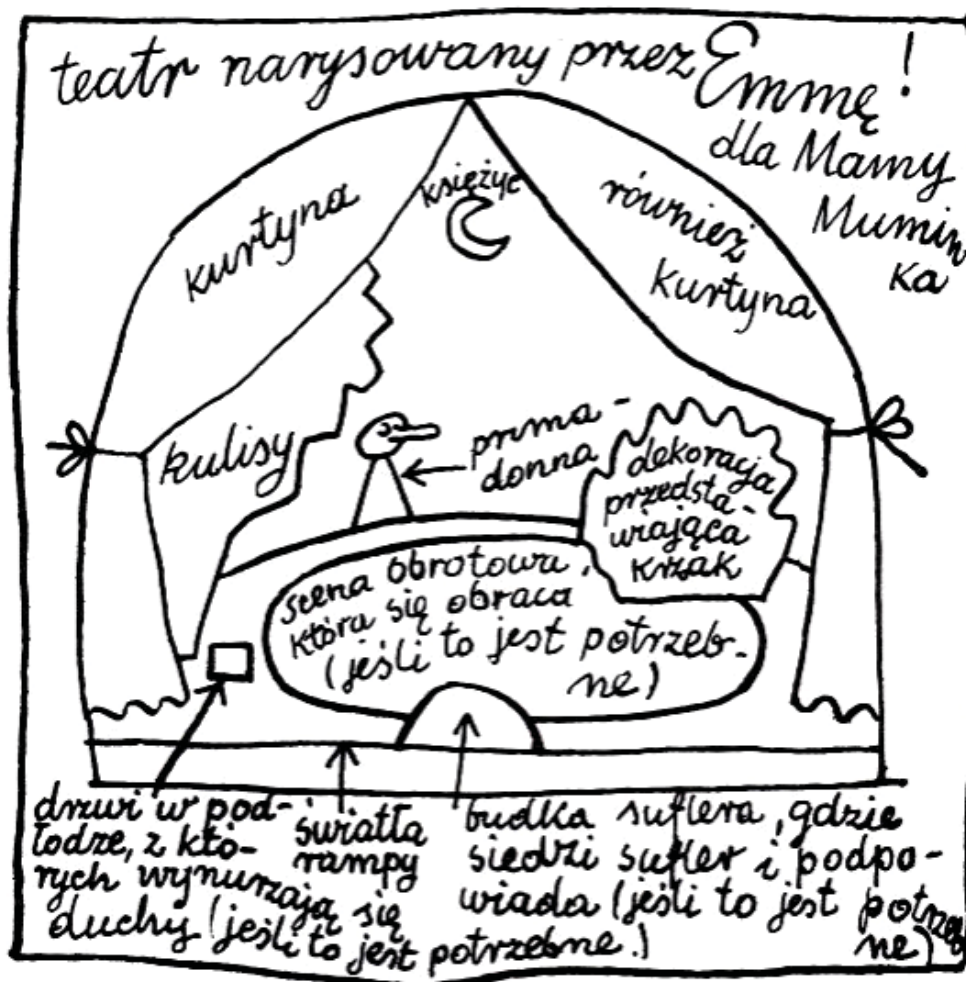 teatr narysowany przez Emmę!
dla Mamy
Mumin
ka
kurtyna
księżyc
również
kurtyna
kulisy
prima-
donna
dekoracja
przedsta-
wiająca
krzak
scena obrotowa,
która się obraca
(jeśli to jest potrzeb-
ne)
drzwi w pod-
łodze, z któ-
rych wynurzają się
duchy (jeśli to jest potrzebne.)
światła
rampy
budka suflera, gdzie
siedzi sufler i podpo-
wiada (jeśli to jest potrzeb
ne)